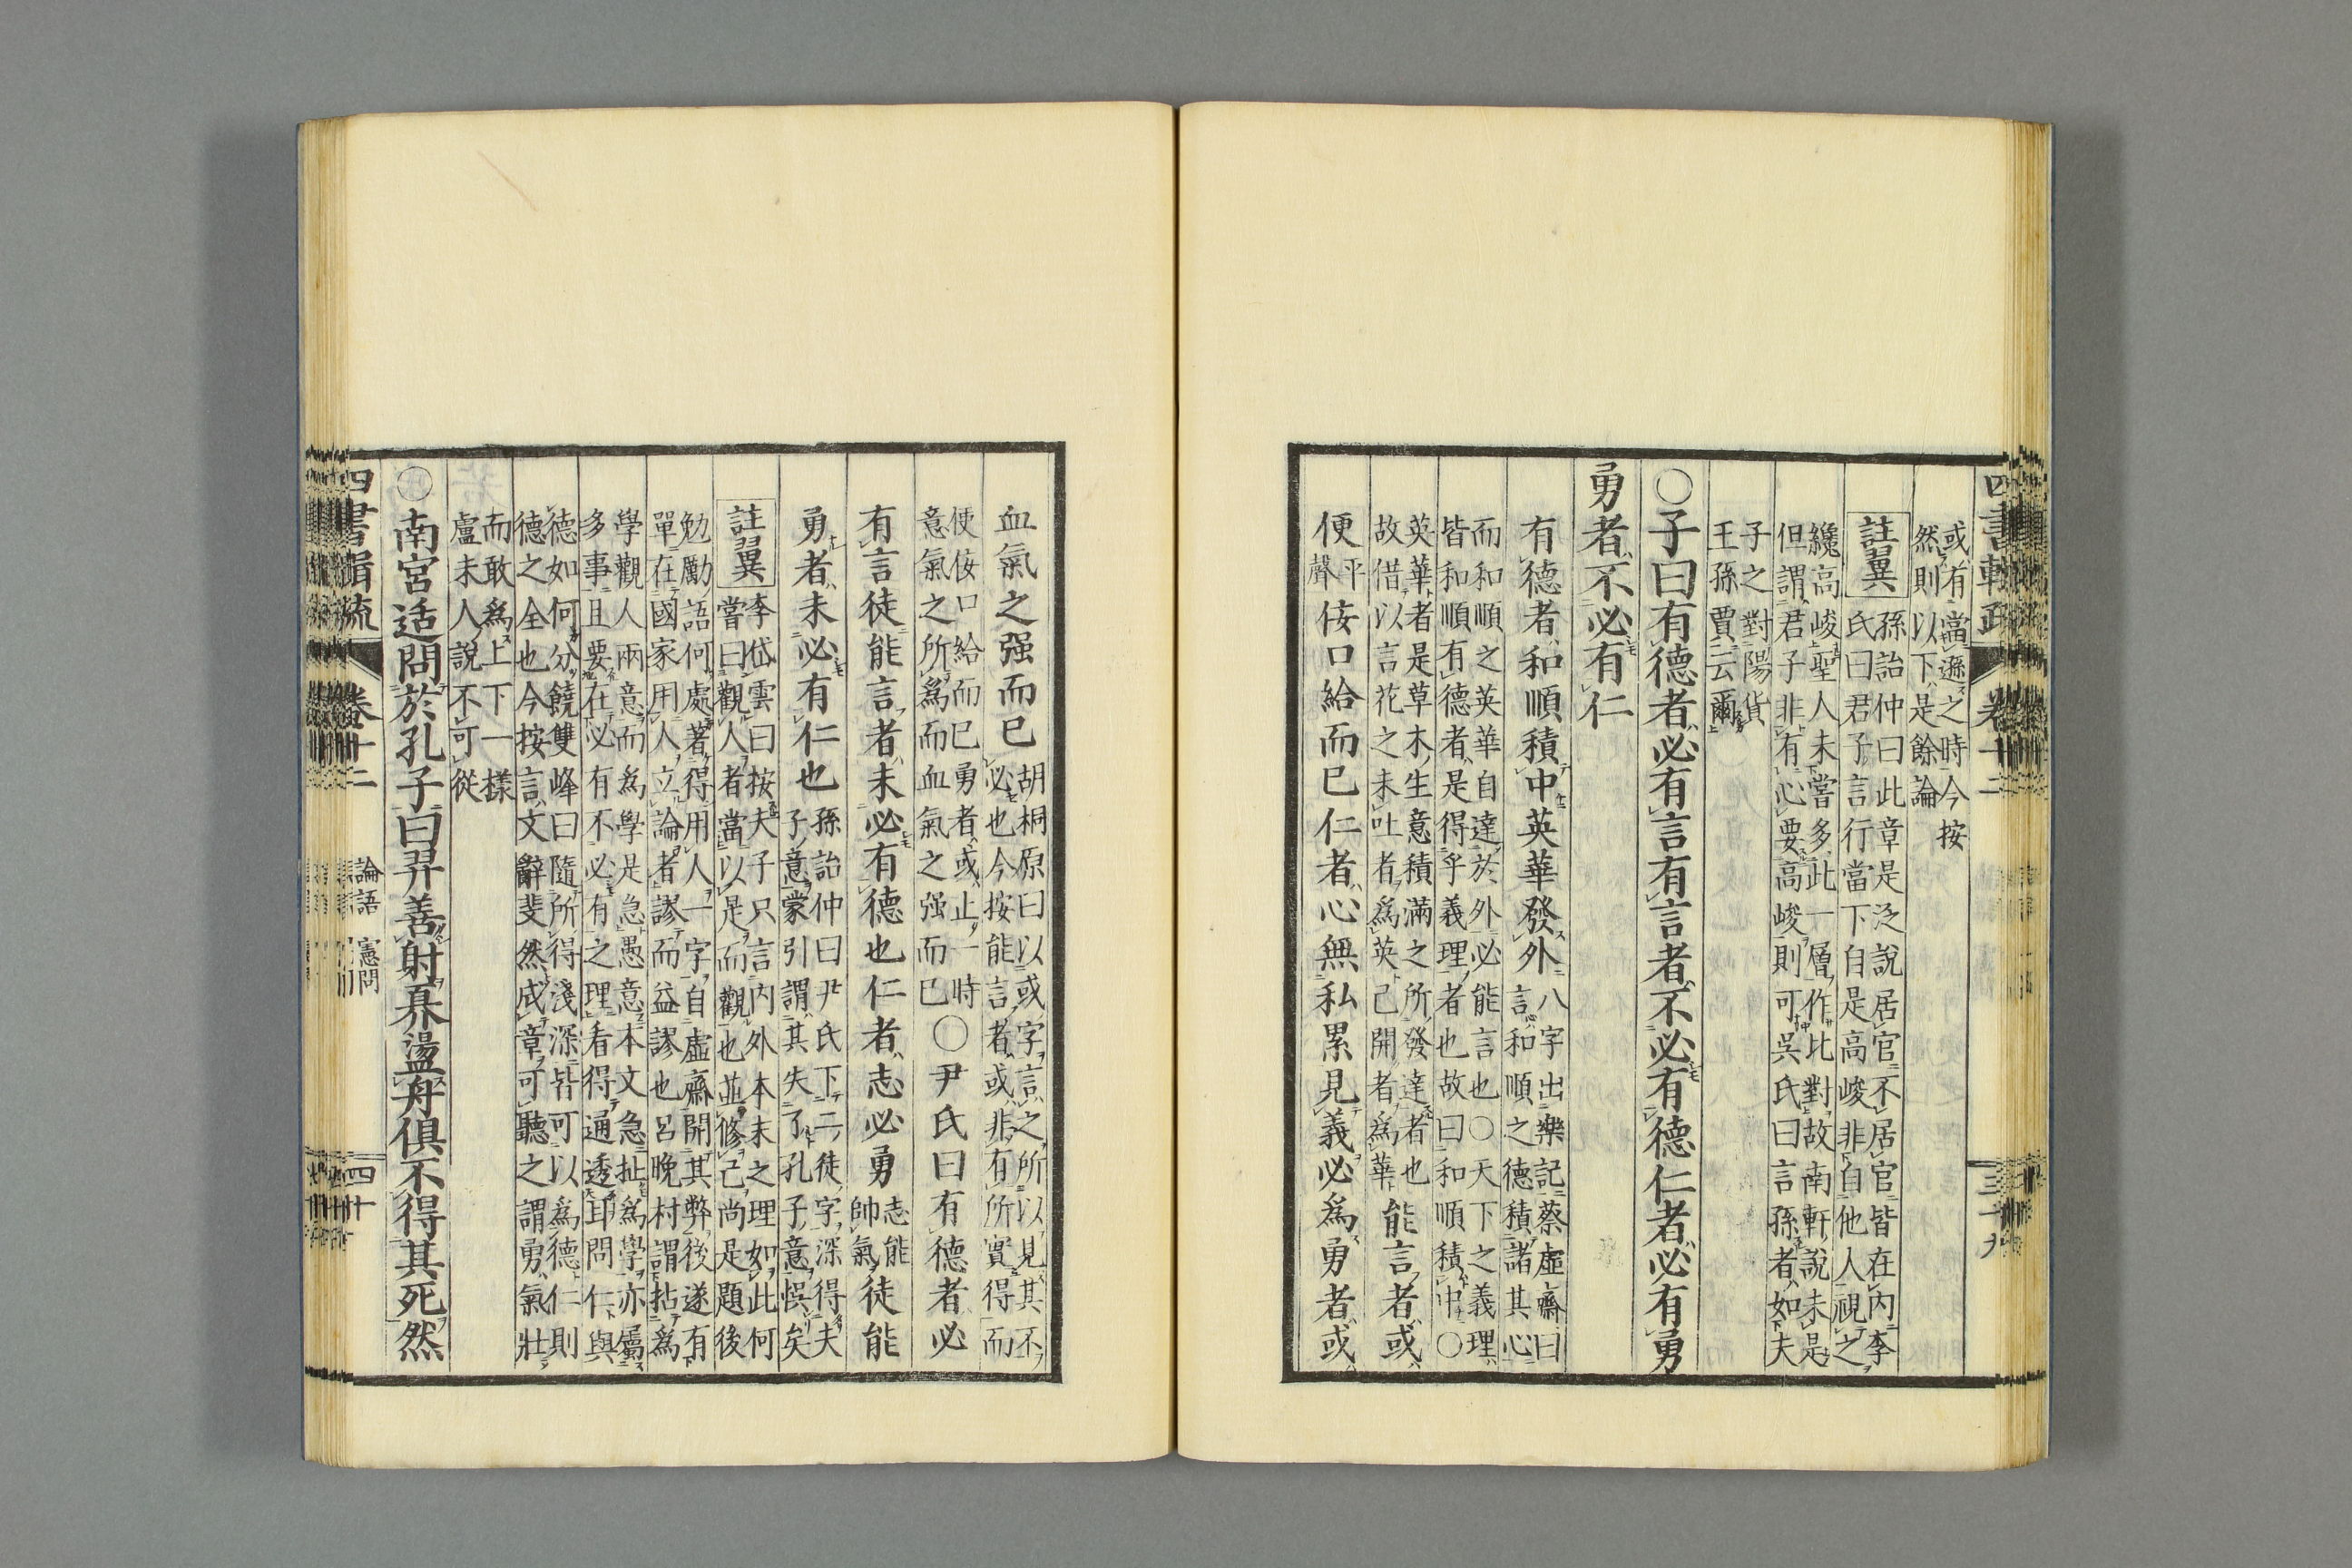 四書輯疏 卷十二 三十九
或有當遜之時今按
然則以下是餘論
註翼 孫詒仲曰此章是泛說居官不居官皆在內李
氏曰君子言行當下自是高峻非自他人視之
纔高峻聖人未嘗多此一層作比對故南軒說未是
但謂君子非有心要高峻則可吳氏曰言孫者如夫
子之對陽貨
王孫賈云爾
○子曰有德者必有言有言者不必有德仁者必有勇
勇者不必有仁
有德者和順積中英華發外 八字出樂記蔡虛齋曰
言和順之德積諸其心
而和順之英華自達於外必能言也○天下之義理
皆和順有德者是得乎義理者也故曰和順積中○
英華者是草木生意積滿之所發達者也
故借以言花之未吐者為英已開者為華 能言者或
便 平聲 佞口給而已仁者心無私累見義必為勇者或
血氣之强而已 胡桐原曰以或字言之所以見其不
必也今按能言者或非有所實得而
便佞口給而已勇者或止一時
意氣之所為而血氣之强而已 ○尹氏曰有德者必
有言徒能言者未必有德也仁者志必勇 志能帥氣 徒能
勇者未必有仁也 孫詒仲曰尹氏下二徒字深得夫
子意蒙引謂其失了孔子意悞矣
註翼 李岱雲曰按夫子只言內外本末之理如此何
嘗曰觀人者當以是而觀也並修己尚是題後
勉勵語何處著得用人一字自虛齋開其弊後遂有
單在國家用人立論者謬而益謬也呂晚村謂拈為
學觀人兩意而為學是急愚意本文急扯為學亦屬
多事且要在必有不必有之理看得通透耳問仁與
德如何分饒雙峰曰隨所得淺深皆可以為德仁則
德之全也今按言文辭斐然成章可聽之謂勇氣壯
而敢為上下一樣
盧未人說不可從
○南宮适問於孔子曰羿善射奡盪舟俱不得其死然
四書輯疏 卷十二 論語 憲問 四十